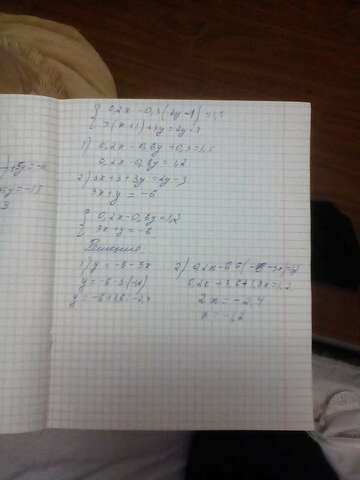 { 0,2x - 0,3(2y+1) = 1,5
{ 3(x+1)+3y=2y-3
1) 0,2x - 0,6y + 0,3=1,5
0,2x - 0,6y = 1,2
2) 3x+3+3y=2y-3
3x+y = -6
{ 0,2x-0,6y=1,2
{ 3x+y=-6
Решение
1) y = -6 - 3x
y = -6 - 3·(
y = -6+3,6=-2,4
2) 0,2x-0,6(-6-3x)=1,2
0,2x + 3,6+1,8x=1,2
2x = -2,4
x = -1,2